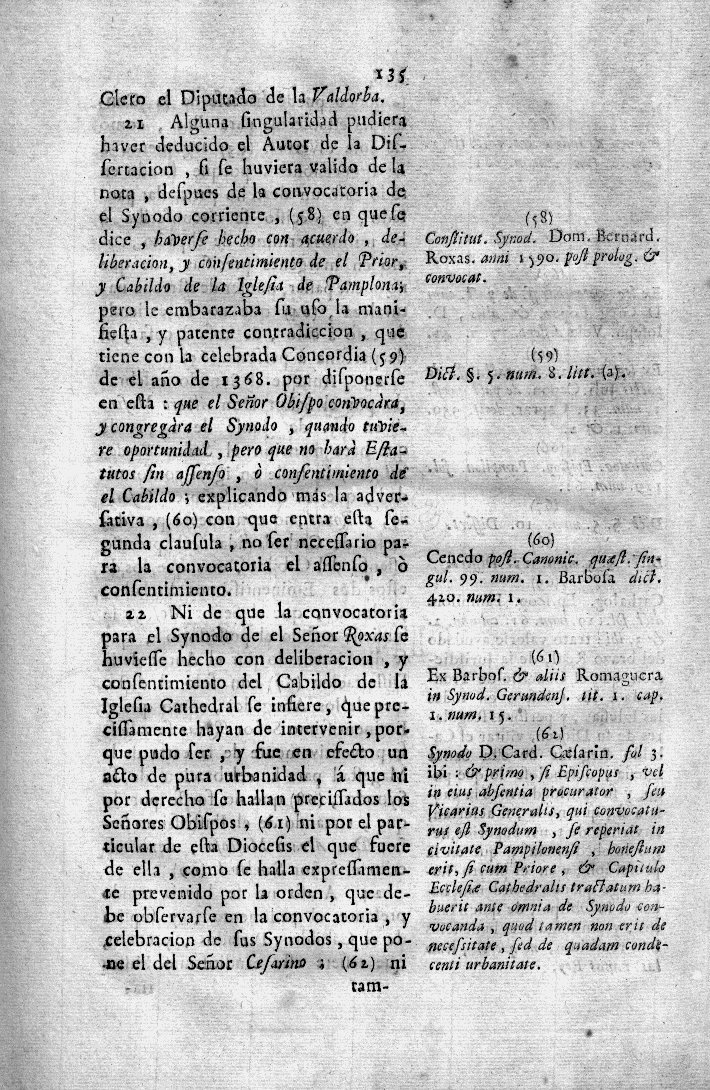 135
Clero el Diputado de la Valdorba.
21 Alguna singularidad pudiera
haver deducido el Autor de la Dis-
sertacion , si se huviera valido de la
nota , despues de la convocatoria de
el Synodo corriente , (58) en que se
dice , haverse hecho con acuerdo , de-
liberacion, y consentimiento de el Prior,
y Cabildo de la Iglesia de Pamplona;
pero le embarazaba su uso la mani-
fiesta , y patente contradiccion , que
tiene con la celebrada Concordia (59)
de el año de 1368. por disponerse
en esta : que el Señor Obispo convocàra,
y congregàra el Synodo , quando tuvie-
re oportunidad , pero que no harà Esta-
tutos sin assenso , ò consentimiento de
el Cabildo ; explicando mas la adver-
sativa , (60) con que entra esta se-
gunda clausula , no ser necessario pa-
ra la convocatoria el assenso , ò
consentimiento.
22 Ni de que la convocatoria
para el Synodo de el Señor Roxas se
huviesse hecho con deliberacion , y
consentimiento del Cabildo de la
Iglesia Cathedral se infiere, que pre-
cissamente hayan de intervenir, por-
que pudo ser , y fue en efecto un
acto de pura urbanidad , á que ni
por derecho se hallan precissados los
Señores Obispos , (61) ni por el par-
ticular de esta Diocesis el que fuere
de ella , como se halla expressamen-
te prevenido por la orden , que de-
be observarse en la convocatoria , y
celebracion de sus Synodos , que po-
ne el del Señor Cesarino : (62) ni
tam-
(58)
Constitut. Synod. Dom. Bernard.
Roxas. anni 1590. post prolog. &
convocat.
(59)
Dict. §. 5. num. 8. litt. (a).
(60)
Cenedo post. Canonic. quæst. sin-
gul. 99. num. 1. Barbosa dict.
420. num. 1.
(61)
Ex Barbos. & aliis Romaguera
in Synod. Gerundens. tit. 1. cap.
1. num. 15.
(62)
Synodo D. Card. Cæsarin. fol 3.
ibi : & primo , si Episcopus , vel
in eius absentia procurator , seu
Vicarius Generalis, qui convocatu-
rus est Synodum , se reperiat in
civitate Pampilonensi , honestum
erit, si cum Priore , & Capitulo
Ecclesiæ Cathedralis tractatum ha-
buerit ante omnia de Synodo con-
vocanda , quod tamen non erit de
necessitate , sed de quadam conde-
centi urbanitate.